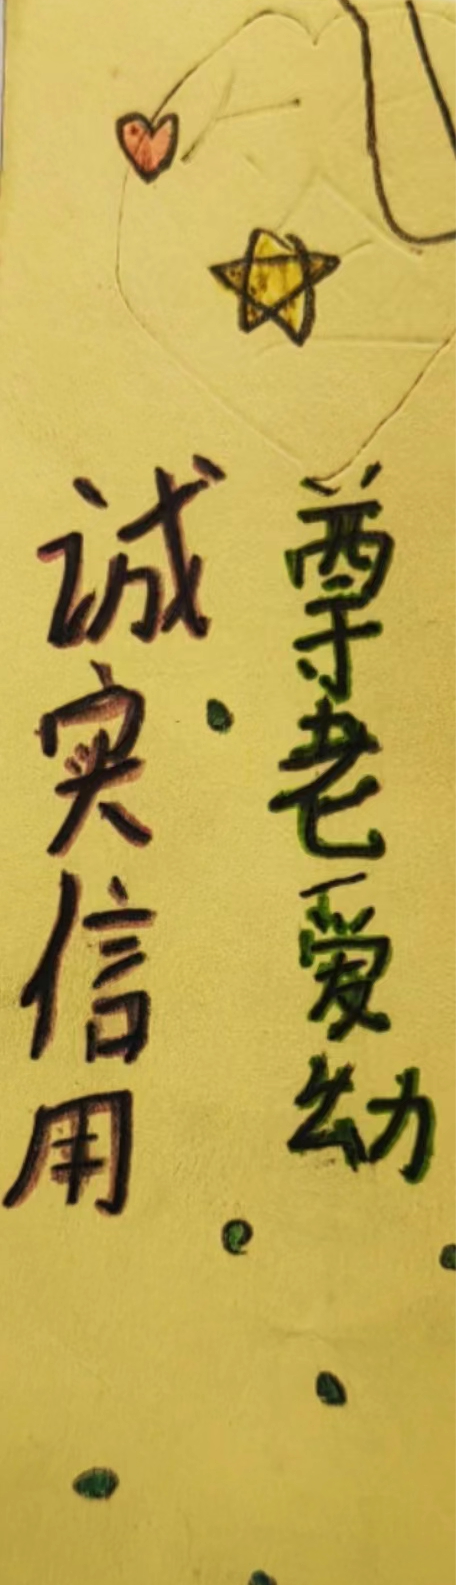 尊老爱幼
诚实信用